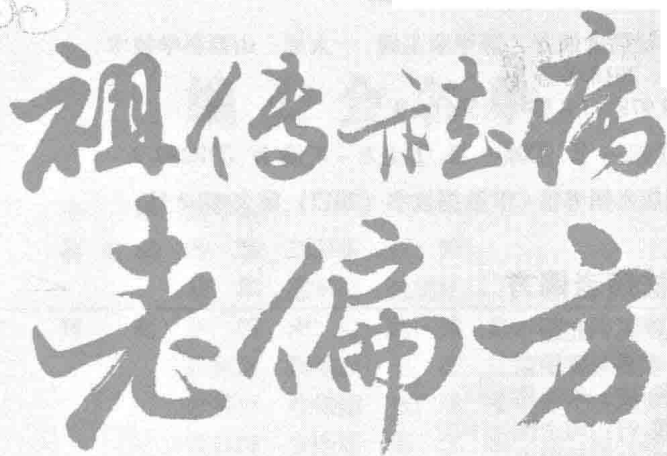 祖传祛病
老偏方